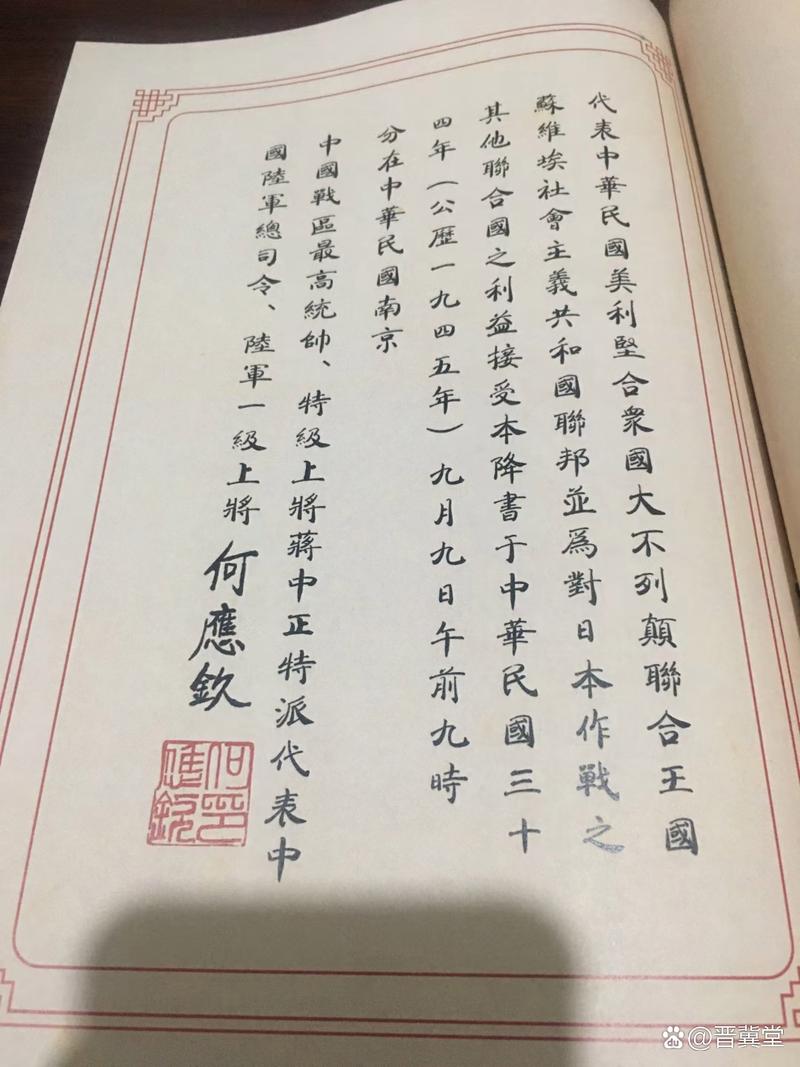 代表中華民國美利堅合衆國大不列顛聯合王國
蘇維埃社會主義共和國聯邦並爲對日本作戰之
其他聯合國之利益接受本降書于中華民國三十
四年（公歷一九四五年）九月九日午前九時
分在中華民國南京
中國戰區最高統帥、特級上將蔣中正特派代表中
國陸軍總司令、陸軍一級上將何應欽
何印應欽
@晋冀堂